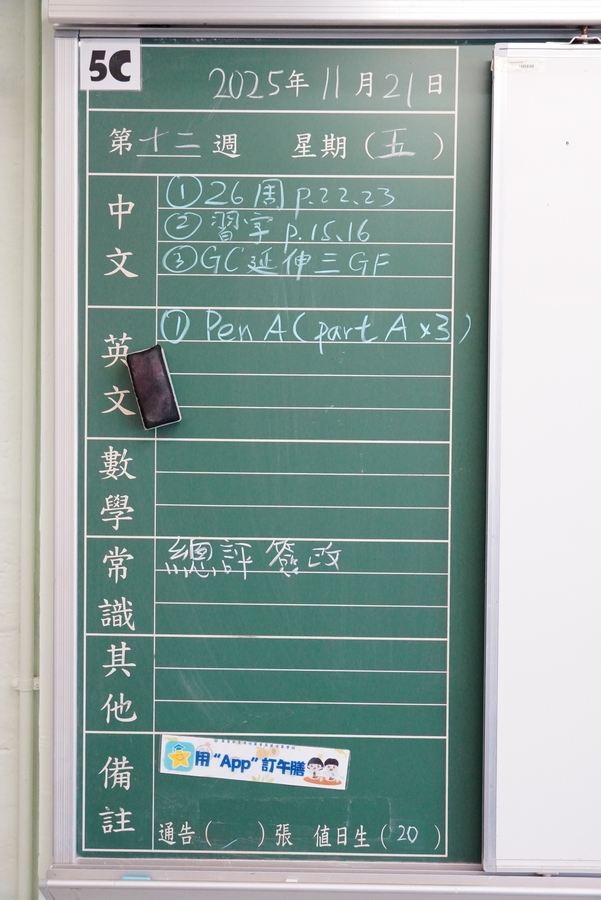 5C
2025年11月21日
第十二週 星期(五)
中文
①26周 p.22、23
②習字 p.15、16
③GC延伸三 GF
英文
①Pen A(part A x3)
數學
常識
總評簽改
其他
備註
用“App”訂午膳
通告( )張 值日生(20)